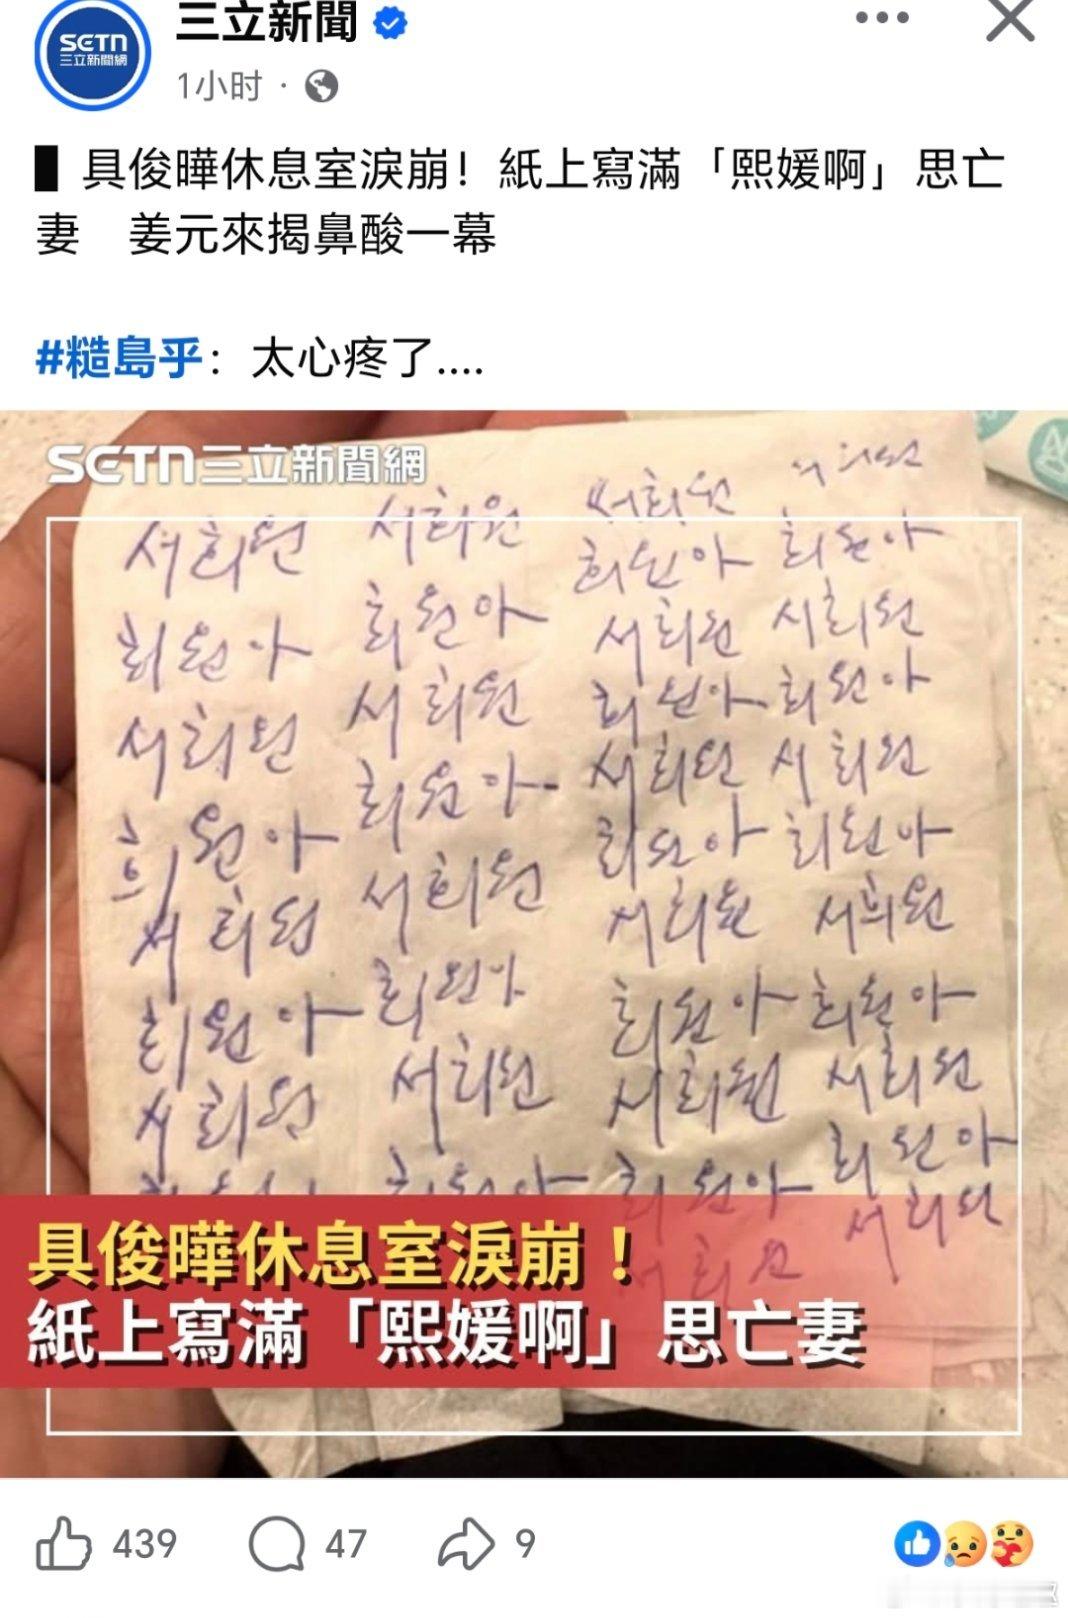 SETN
三立新聞網
三立新聞
1小时
▋具俊曄休息室淚崩！紙上寫滿「熙媛啊」思亡
妻　姜元來揭鼻酸一幕
#糙島乎：太心疼了....
SETN三立新聞網
서희원 서희원 서희원
희원아 희원아 희원아 희원아
서희원 서희원 서희원 서희원
희원아 희원아 희원아 희원아
서희원 서희원 서희원 서희원
희원아 희원아 희원아 희원아
서희원 서희원 서희원 서희원
희원아 희원아 희원아
서희원 서희원
희원아
서희원
具俊曄休息室淚崩！
紙上寫滿「熙媛啊」思亡妻
439 47 9